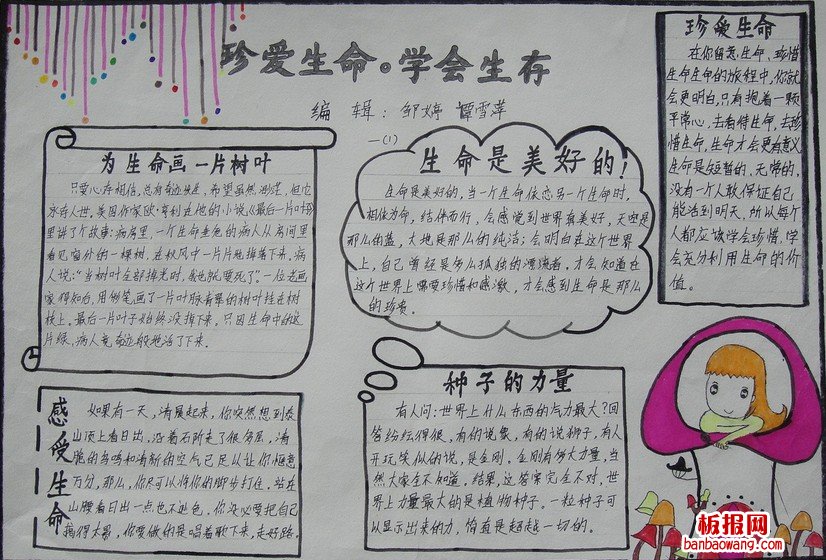 珍爱生命。学会生存
编 辑：邹婷 谭雪萍
一(1)
为生命画一片树叶
只要心存相信，总有奇迹发生，希望虽然渺茫，但它
永存人世。美国作家欧·亨利在他的小说《最后一片叶》
里讲了个故事：病房里，一个生命垂危的病人从房间里
看见窗外的一棵树，在秋风中一片片地掉落下来。病
人说："当树叶全部掉光时，我也就要死了"。一位老画
家得知后，用彩笔画了一片叶脉青翠的树叶挂在树
枝上。最后一片叶子始终没掉下来。只因生命中的这
片绿，病人竟奇迹般地活了下来。
生命是美好的！
生命是美好的，当一个生命依恋另一个生命时，
相依为命，结伴而行，会感觉到世界真美好，天空是
那么的蓝，大地是那么的纯洁；会明白在这个世界
上，自己曾经是多么孤独的漂流者。才会知道在
这个世界上哪要珍惜和感激，才会感到生命是那么
的珍贵。
珍爱生命
在你留恋生命，珍惜
生命生命的旅程中，你就
会更明白，只有抱着一颗
平常心，去看待生命，去珍
惜生命，生命才会更有意义
生命是短暂的，无常的，
没有一个人敢保证自己
能活到明天，所以每个
人都应该学会珍惜，学
会充分利用生命的价
值。
感受生命
如果有一天，清晨起来，你突然想到泰
山顶上看日出，沿着石阶走了很多层，清
脆的鸟鸣和清新的空气已足以让你惬意
万分，那么，你尽可以将你的脚步打住。站在
山腰看日出一点也不逊色。你没必要把自己
搞得太累，你要做的是唱着歌下来，走好路。
种子的力量
有人问：世界上什么东西的气力最大？回
答纷纭得很，有的说象，有的说狮子，有人
开玩笑似的说，是金刚，金刚有多大力量，当
然大家全不知道。结果，这答案完全不对，世
界上力量最大的是植物种子。一粒种子可
以显示出来的力，简直是超越一切的。
板报网
banbaowang.com